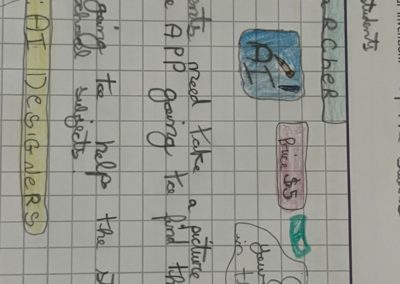 students
RCHER
AI
Price $5
in t
nts need take a picture
e APP going to find th
going too help the s
school subjects.
: AI DESIGNERS